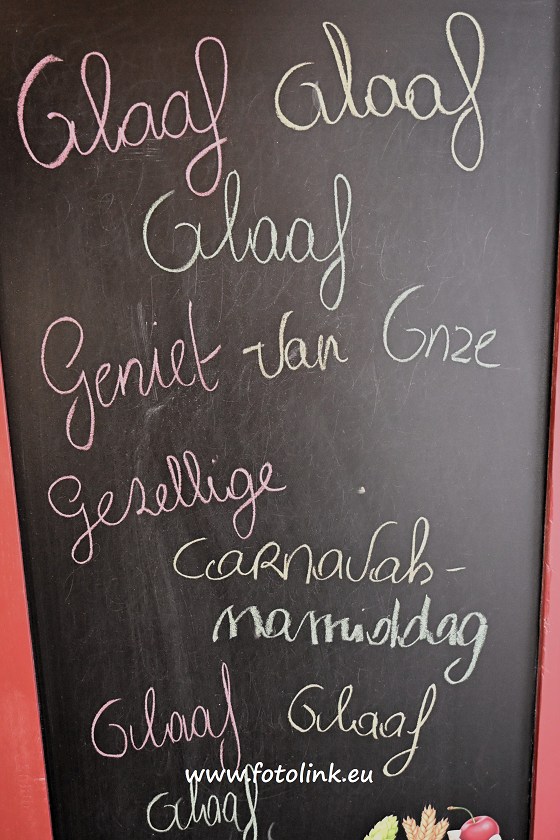 Alaaf Alaaf
Alaaf
Geniet van Onze
Gezellige
CARNAVals-
namiddag
Alaaf Alaaf
www.fotolink.eu
Alaaf